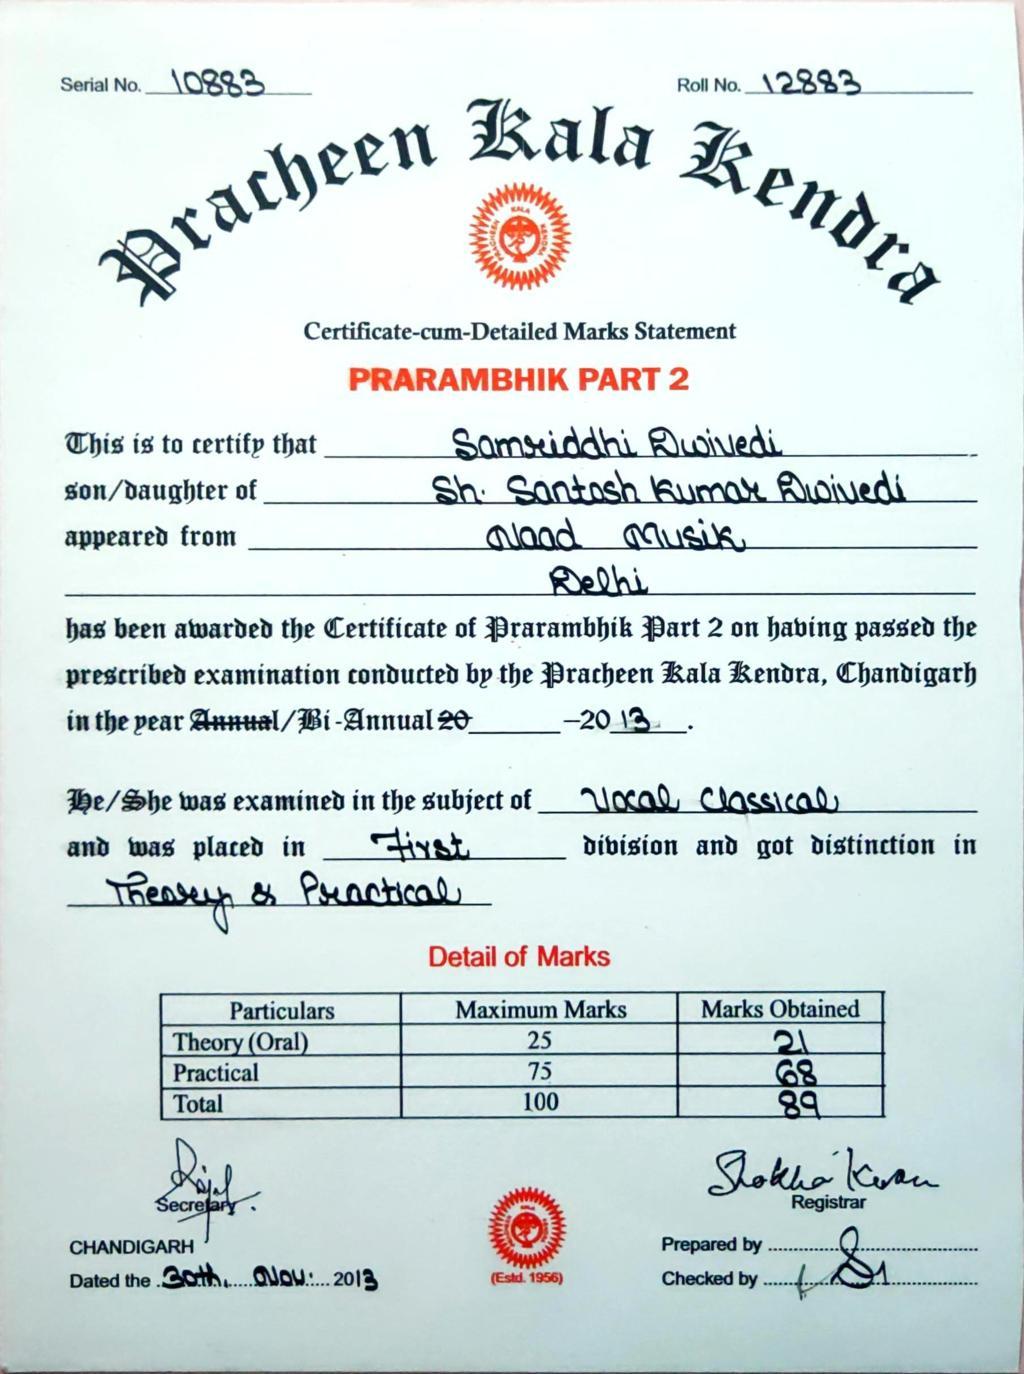 Serial No. 10883 Roll No. 12883
Pracheen Kala Kendra
PRACHEEN KALA KENDRA
Certificate-cum-Detailed Marks Statement
PRARAMBHIK PART 2
This is to certify that Samriddhi Dwivedi
son/daughter of Sh. Santosh Kumar Dwivedi
appeared from Naad Musik
Delhi
has been awarded the Certificate of Prarambhik Part 2 on having passed the
prescribed examination conducted by the Pracheen Kala Kendra, Chandigarh
in the year Annual/Bi-Annual 20 -2013.
He/She was examined in the subject of Vocal Classical
and was placed in First division and got distinction in
Theory & Practical
Detail of Marks
Particulars Maximum Marks Marks Obtained
Theory (Oral) 25 21
Practical 75 68
Total 100 89
Secretary
Registrar
CHANDIGARH
Prepared by
Dated the 30th, Nov. 2013
(Estd. 1956)
Checked by